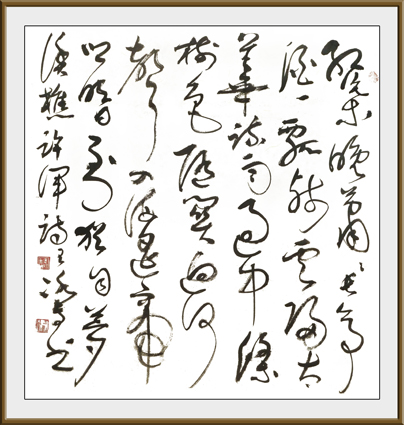 紅葉晚蕭蕭長亭
酒一瓢殘雲歸太
華疏雨過中條
樹色隨關迥河
聲入海遙帝
鄉明日到猶自夢
漁樵許渾詩王書